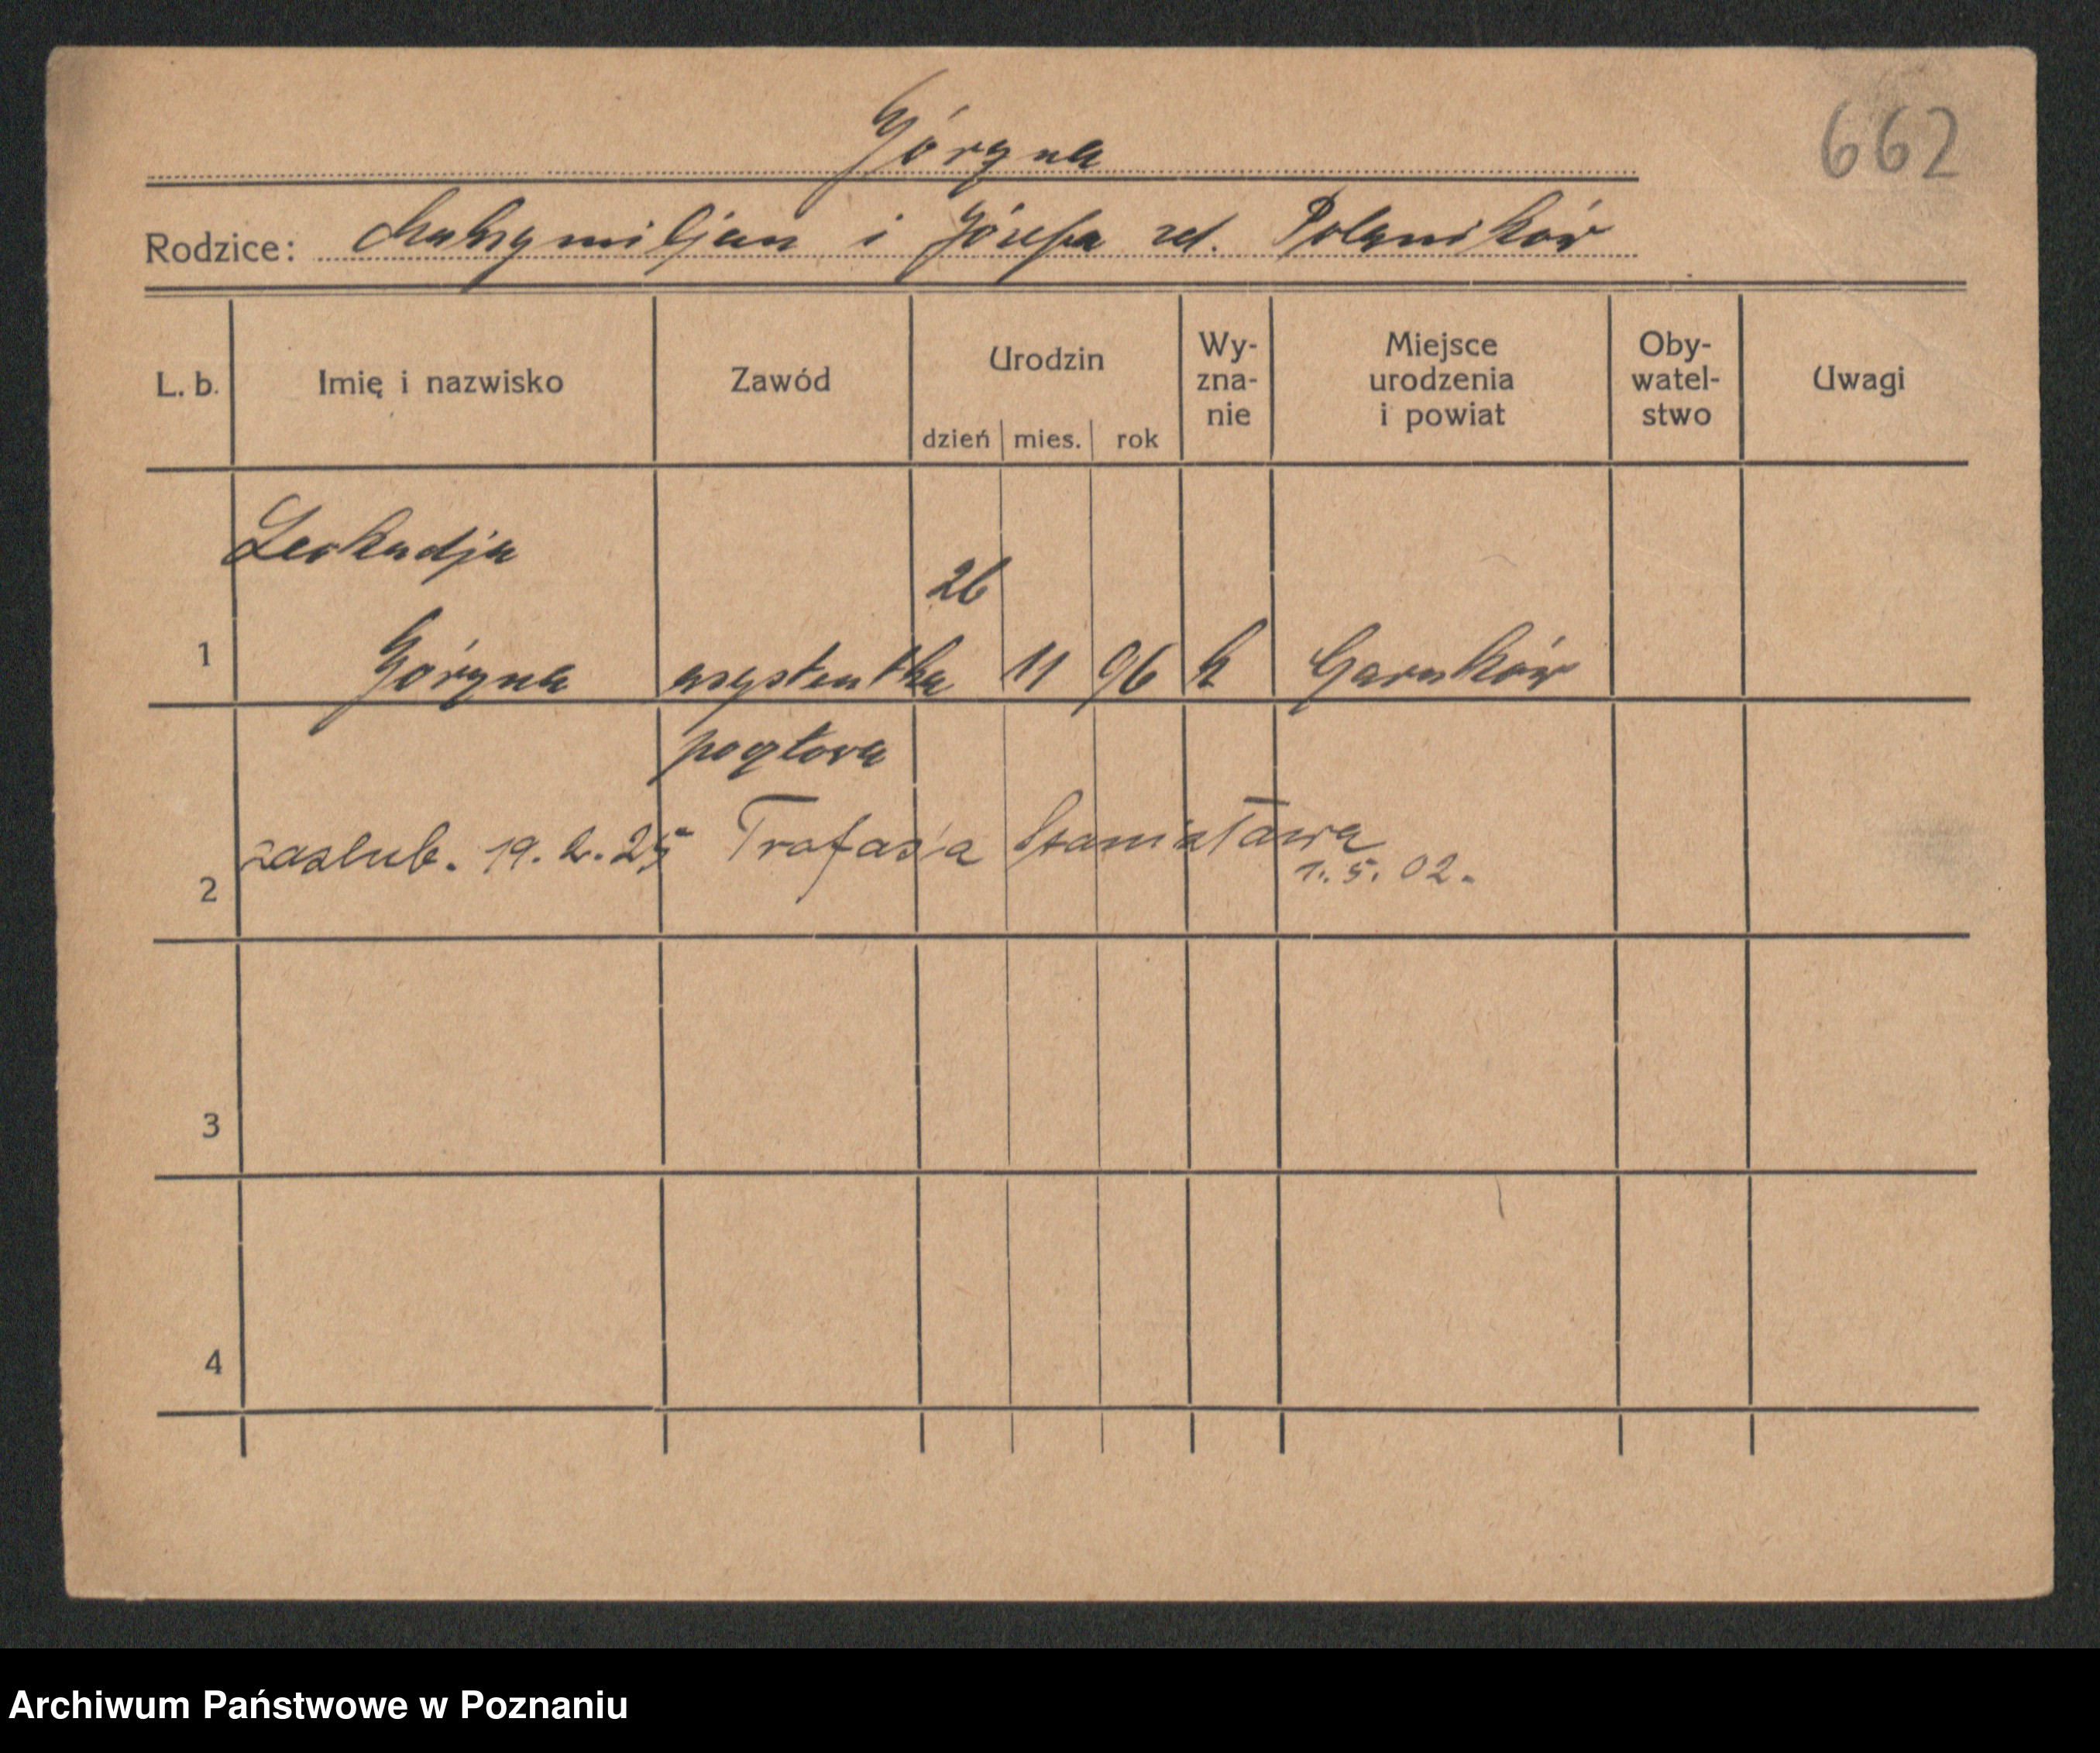 Góryna
662
Rodzice: Maksymiljan i Józefa zd. Polyników
L. b.
Imię i nazwisko
Zawód
Urodzin
dzień mies. rok
Wy-
zna-
nie
Miejsce
urodzenia
i powiat
Oby-
watel-
stwo
Uwagi
Leokadja
26
1 Góryna asystentka 11 96 k Czarnków
pocztowa
zaslub. 19. 2. 25 Trafasia Stanisława
1. 5. 02.
2
3
4
Archiwum Państwowe w Poznaniu